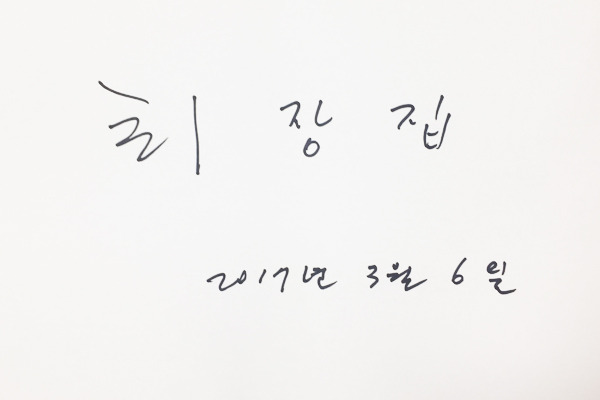 최 장 집
2017년 3월 6일